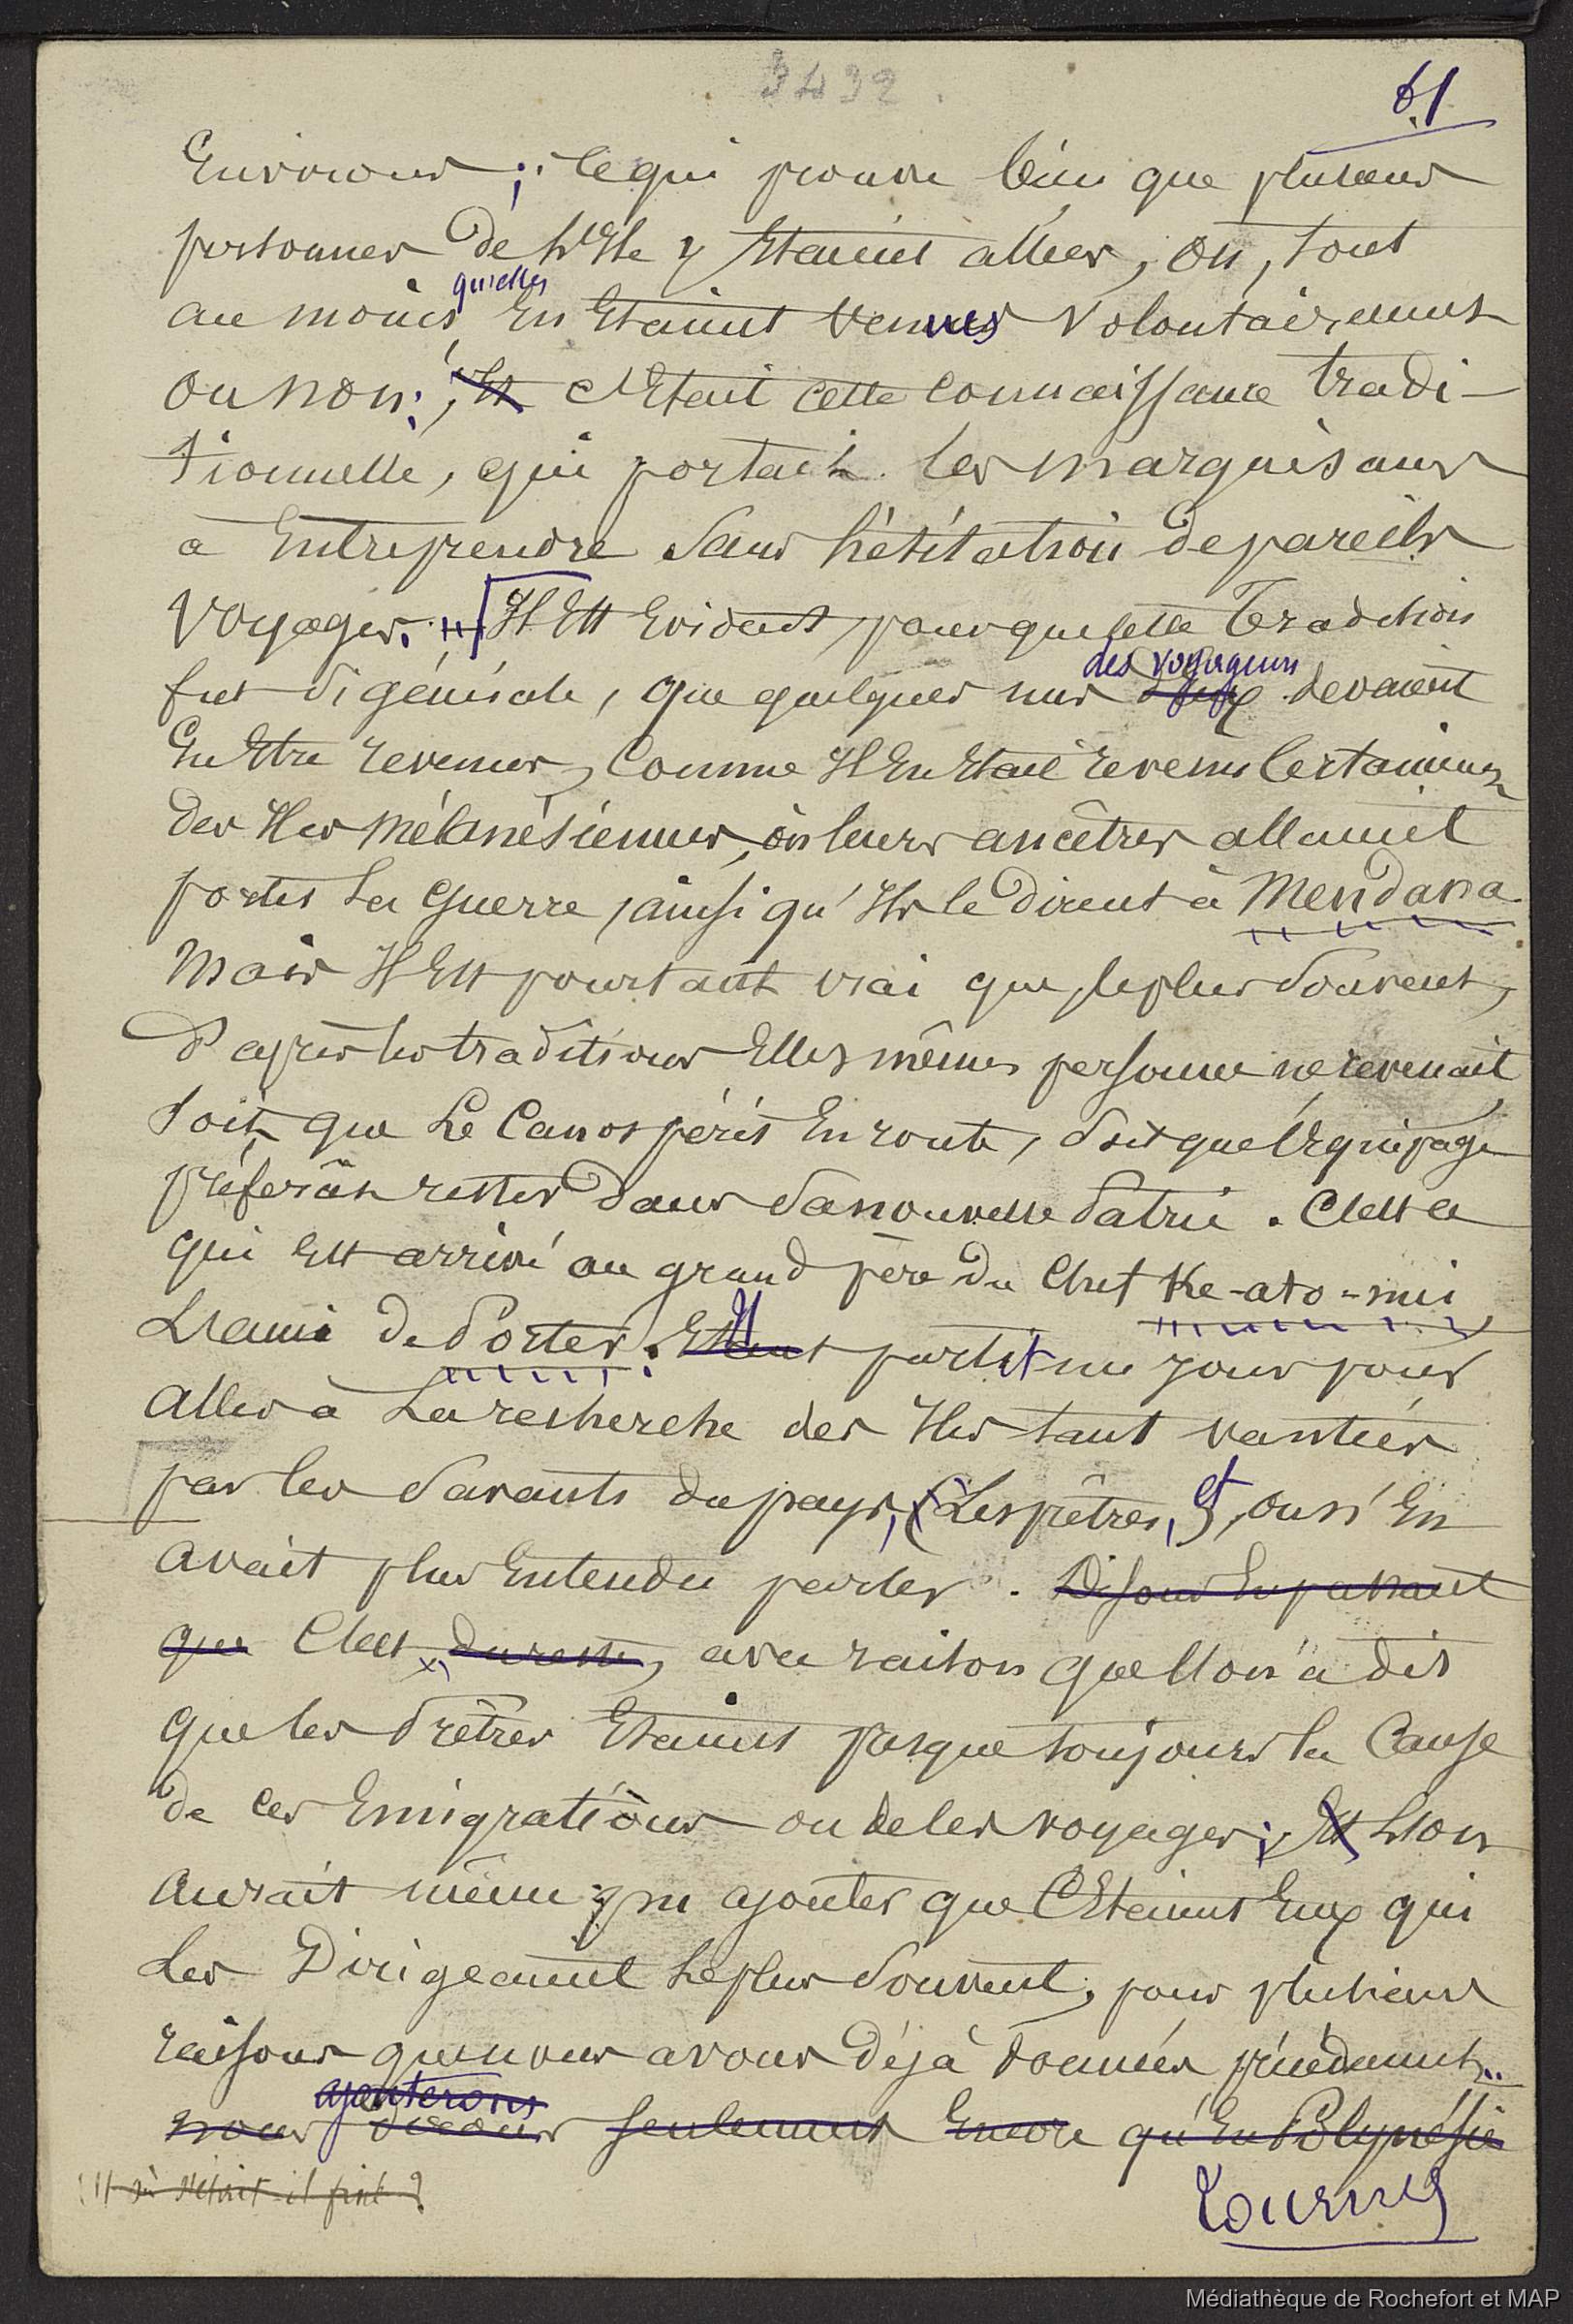 3432.
61
Environs; ce qui prouve bien que plusieurs
personnes de l'Ile y Etaient allées, ou, tout
au moins qu'elles En Etaient venues volontairement
ou non; Et C'Etait cette connaissance tradi-
tionnelle, qui portait les marquisans
à Entreprendre sans hésitation de pareils
voyages. Il Est Evident, pour que cette Tradition
fut si générale, que quelques uns des voyageurs devaient
En Etre revenus, Comme Il En Etait revenu Certainement
des Iles mélanésiennes, où leurs ancêtres allaient
porter La guerre, ainsi qu'Ils le dirent à Mendana.
Mais Il Est pourtant vrai que, le plus souvent,
D'après les traditions Elles mêmes personne ne revenait
soit que Le Canot périt En route, soit que l'Equipage
préférât rester dans sa nouvelle Patrie. C'est ce
qui Est arrivé au grand père du Chef Ke-ato-nui
L'ami de Porter. Il partit un jour pour
aller à La recherche des Iles tant vantées
par les savants du pays, (Les prêtres, et, ou n'En
avait plus Entendu parler. Disons En passant
que C'est, du reste, avec raison que l'on a dit
que les Prêtres Etaient presque toujours la Cause
de ces Emigrations ou de ces voyages; Et L'on
aurait même pu ajouter que C'Etaient Eux qui
Les Dirigeaient Le plus souvent, pour plusieurs
raisons que nous avons Déjà données précédemment..
nous ajouterons dirons seulement Encore qu'En Polynésie
(1) où s'était-il fixé?
tournez
Médiathèque de Rochefort et MAP